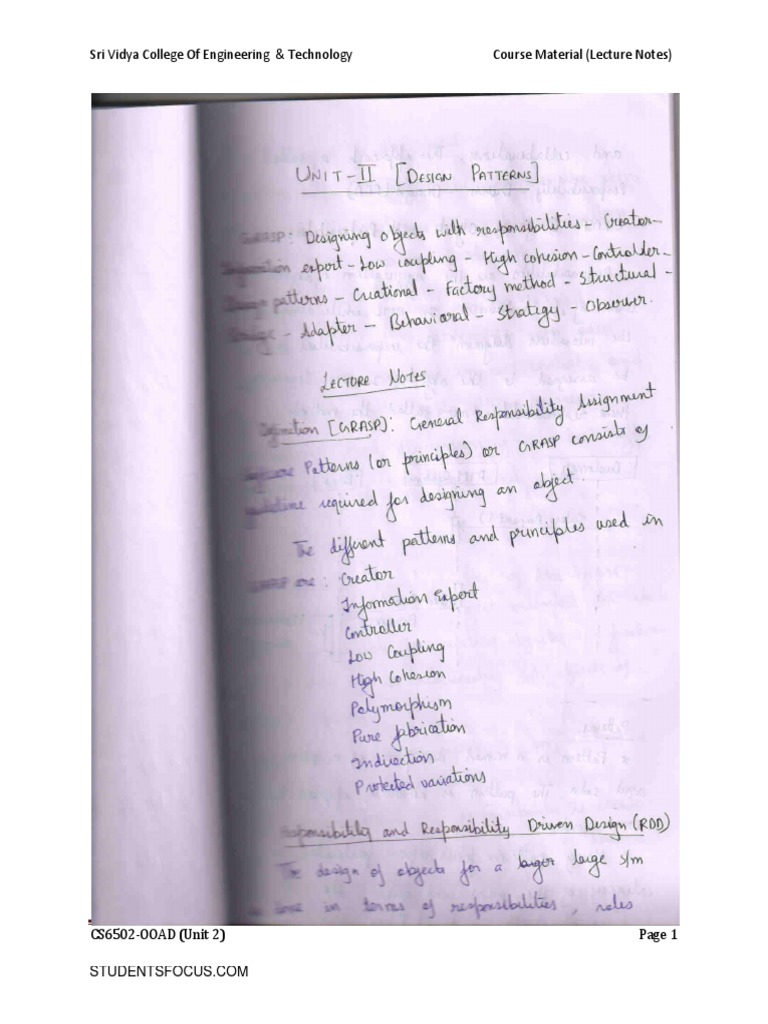 Sri Vidya College Of Engineering & Technology Course Material (Lecture Notes)
UNIT-II [DESIGN PATTERNS]
GRASP: Designing objects with responsibilities - Creator -
expert - Low coupling - High cohesion - Controller -
patterns - Creational - Factory method - Structural -
Bridge - Adapter - Behavioral - Strategy - Observer.
LECTURE NOTES
Definition [GRASP]: General Responsibility Assignment
Patterns (or principles) or GRASP consists of
guideline required for designing an object.
The different patterns and principles used in
GRASP are: Creator
Information Expert
Controller
Low Coupling
High Cohesion
Polymorphism
Pure fabrication
Indirection
Protected variations
Responsibility and Responsibility Driven Design (RDD)
The design of objects for a larger large s/m
is done in terms of responsibilities, roles
CS6502-OOAD (Unit 2) Page 1
STUDENTSFOCUS.COM